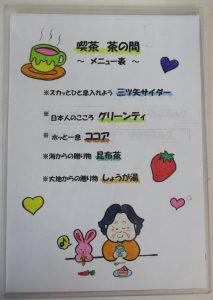 喫茶 茶の間
～ メニュー表 ～
※スカッとひと息入れよう 三ツ矢サイダー
※日本人のこころ グリーンティ
※ホッと一息 ココア
※海からの贈り物 昆布茶
※大地からの贈り物 しょうが湯